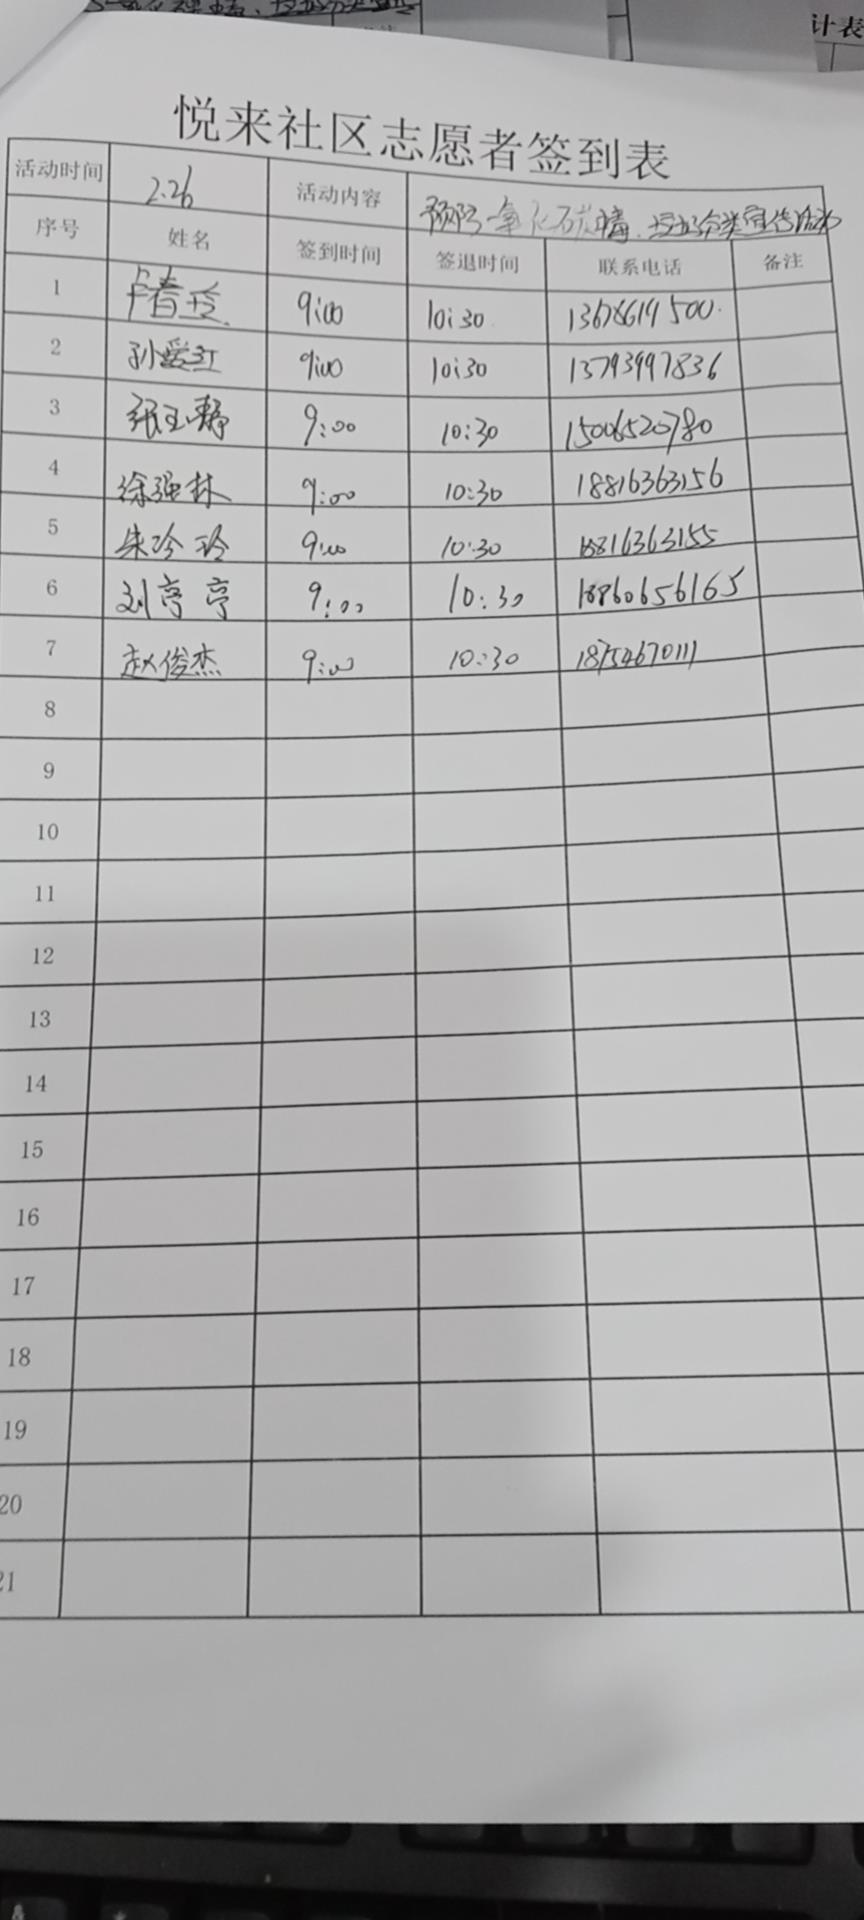 计表
悦来社区志愿者签到表
活动时间 2.26 活动内容 预防一氧化碳中毒、垃圾分类宣传活动
序号 姓名 签到时间 签退时间 联系电话 备注
1 春玲 9:00 10:30
2 孙爱红 9:00 10:30 13793997836
3 张玉静 9:00 10:30 15006520780
4 徐强林 9:00 10:30 18816363156
5 朱玲玲 9:00 10:30 18816363155
6 刘亭亭 9:00 10:30 18960656165
7 赵俊杰 9:00 10:30 18754670111
8
9
10
11
12
13
14
15
16
17
18
19
20
21